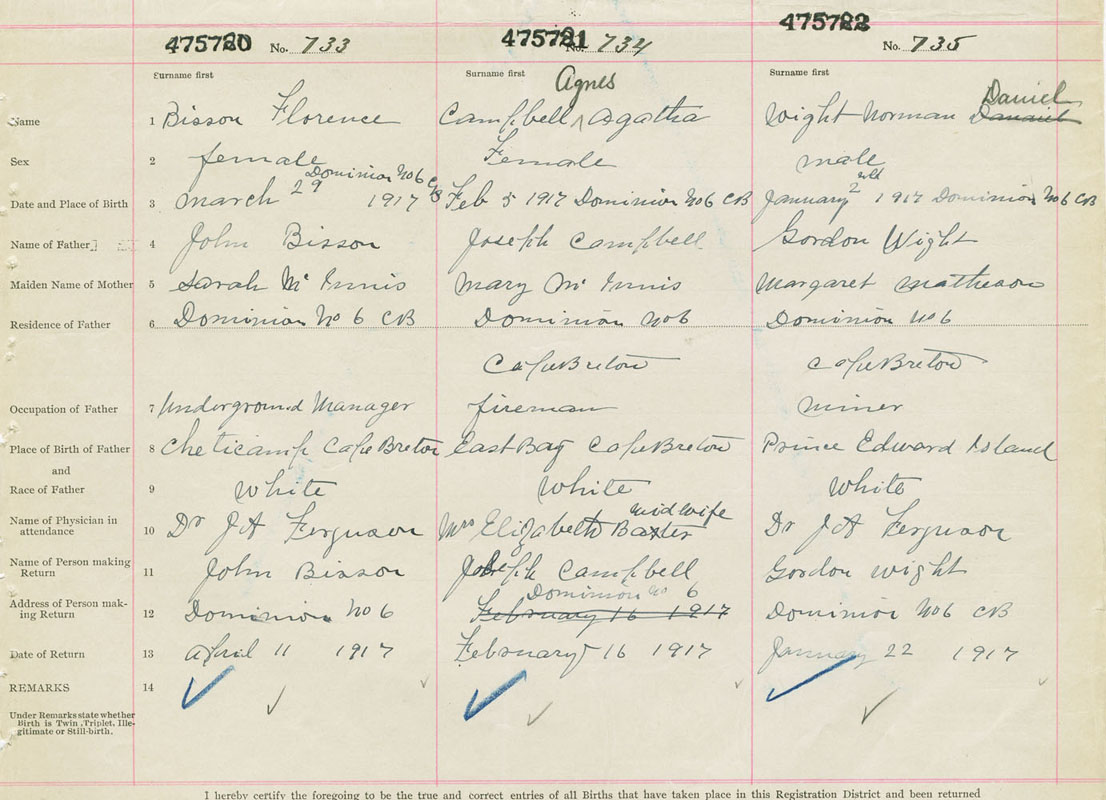 475720 No. 733 475721 No. 734 475722 No. 735
Surname first Surname first Surname first
Agnes Daniel
Name 1 Bisson Florence Campbell ^ Agatha Wight Norman
Sex 2 female Female male
Dominion No 6 CB nd
Date and Place of Birth 3 march 29 1917 Feb 5 1917 Dominion No 6 CB January 2 1917 Dominion No 6 CB
Name of Father 4 John Bisson Joseph Campbell Gordon Wight
Maiden Name of Mother 5 Sarah Mc Innis Mary Mc Innis Margaret Matheson
Residence of Father 6 Dominion No 6 CB Dominion No 6 Dominion No 6
Cape Breton Cape Breton
Occupation of Father 7 Underground Manager fireman miner
Place of Birth of Father 8 Cheticamp Cape Breton East Bay Cape Breton Prince Edward Island
and
Race of Father 9 White White White
midwife
Name of Physician in attendance 10 Dr JA Ferguson Mrs Elizabeth Baxter Dr JA Ferguson
Name of Person making Return 11 John Bisson Joseph Campbell Gordon Wight
Dominion No 6
Address of Person mak-ing Return 12 Dominion No 6 February 16 1917 Dominion No 6 CB
Date of Return 13 April 11 1917 February 16 1917 January 22 1917
REMARKS 14
Under Remarks state whether
Birth is Twin, Triplet, Ille-
gitimate or Still-birth.
I hereby certify the foregoing to be the true and correct entries of all Births that have taken place in this Registration District and been returned